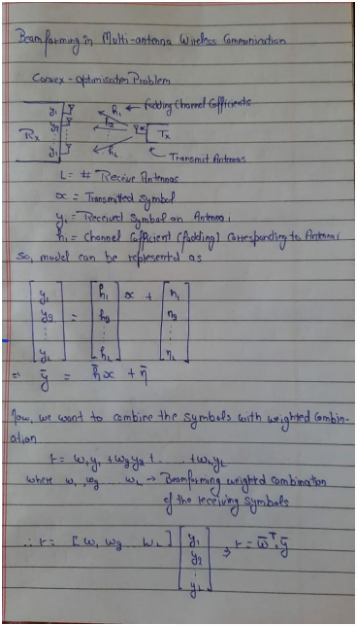 Beamforming in Multi-antenna Wireless Communication
Convex-optimisation Problem
y₁ h₁ ← fadding Channel Cofficients
y₂ h₂
Rx Tx
y_L h_L
Transmit Antennas
L = # Receive Antennas
x = Transmitted Symbol
y₁ = Received Symbol on Antenna 1
h₁ = Channel Cofficient (fadding) Corresponding to Antenna 1
So, model can be represented as
[y₁ y₂ ⋮ y_L] = [h₁ h₂ ⋮ h_L] x + [n₁ n₂ ⋮ n_L]
= ȳ = h̄x + n̄
Now, we want to combine the symbols with weighted Combin-
ation
r = w₁y₁ + w₂y₂ + ...... + w_Ly_L
where w₁, w₂ .... w_L → Beamforming weighted combination
of the receiving Symbols
∴ r = [w₁ w₂ ... w_L] [y₁ y₂ ⋮ y_L] ⇒ r = w̄ᵀ.ȳ